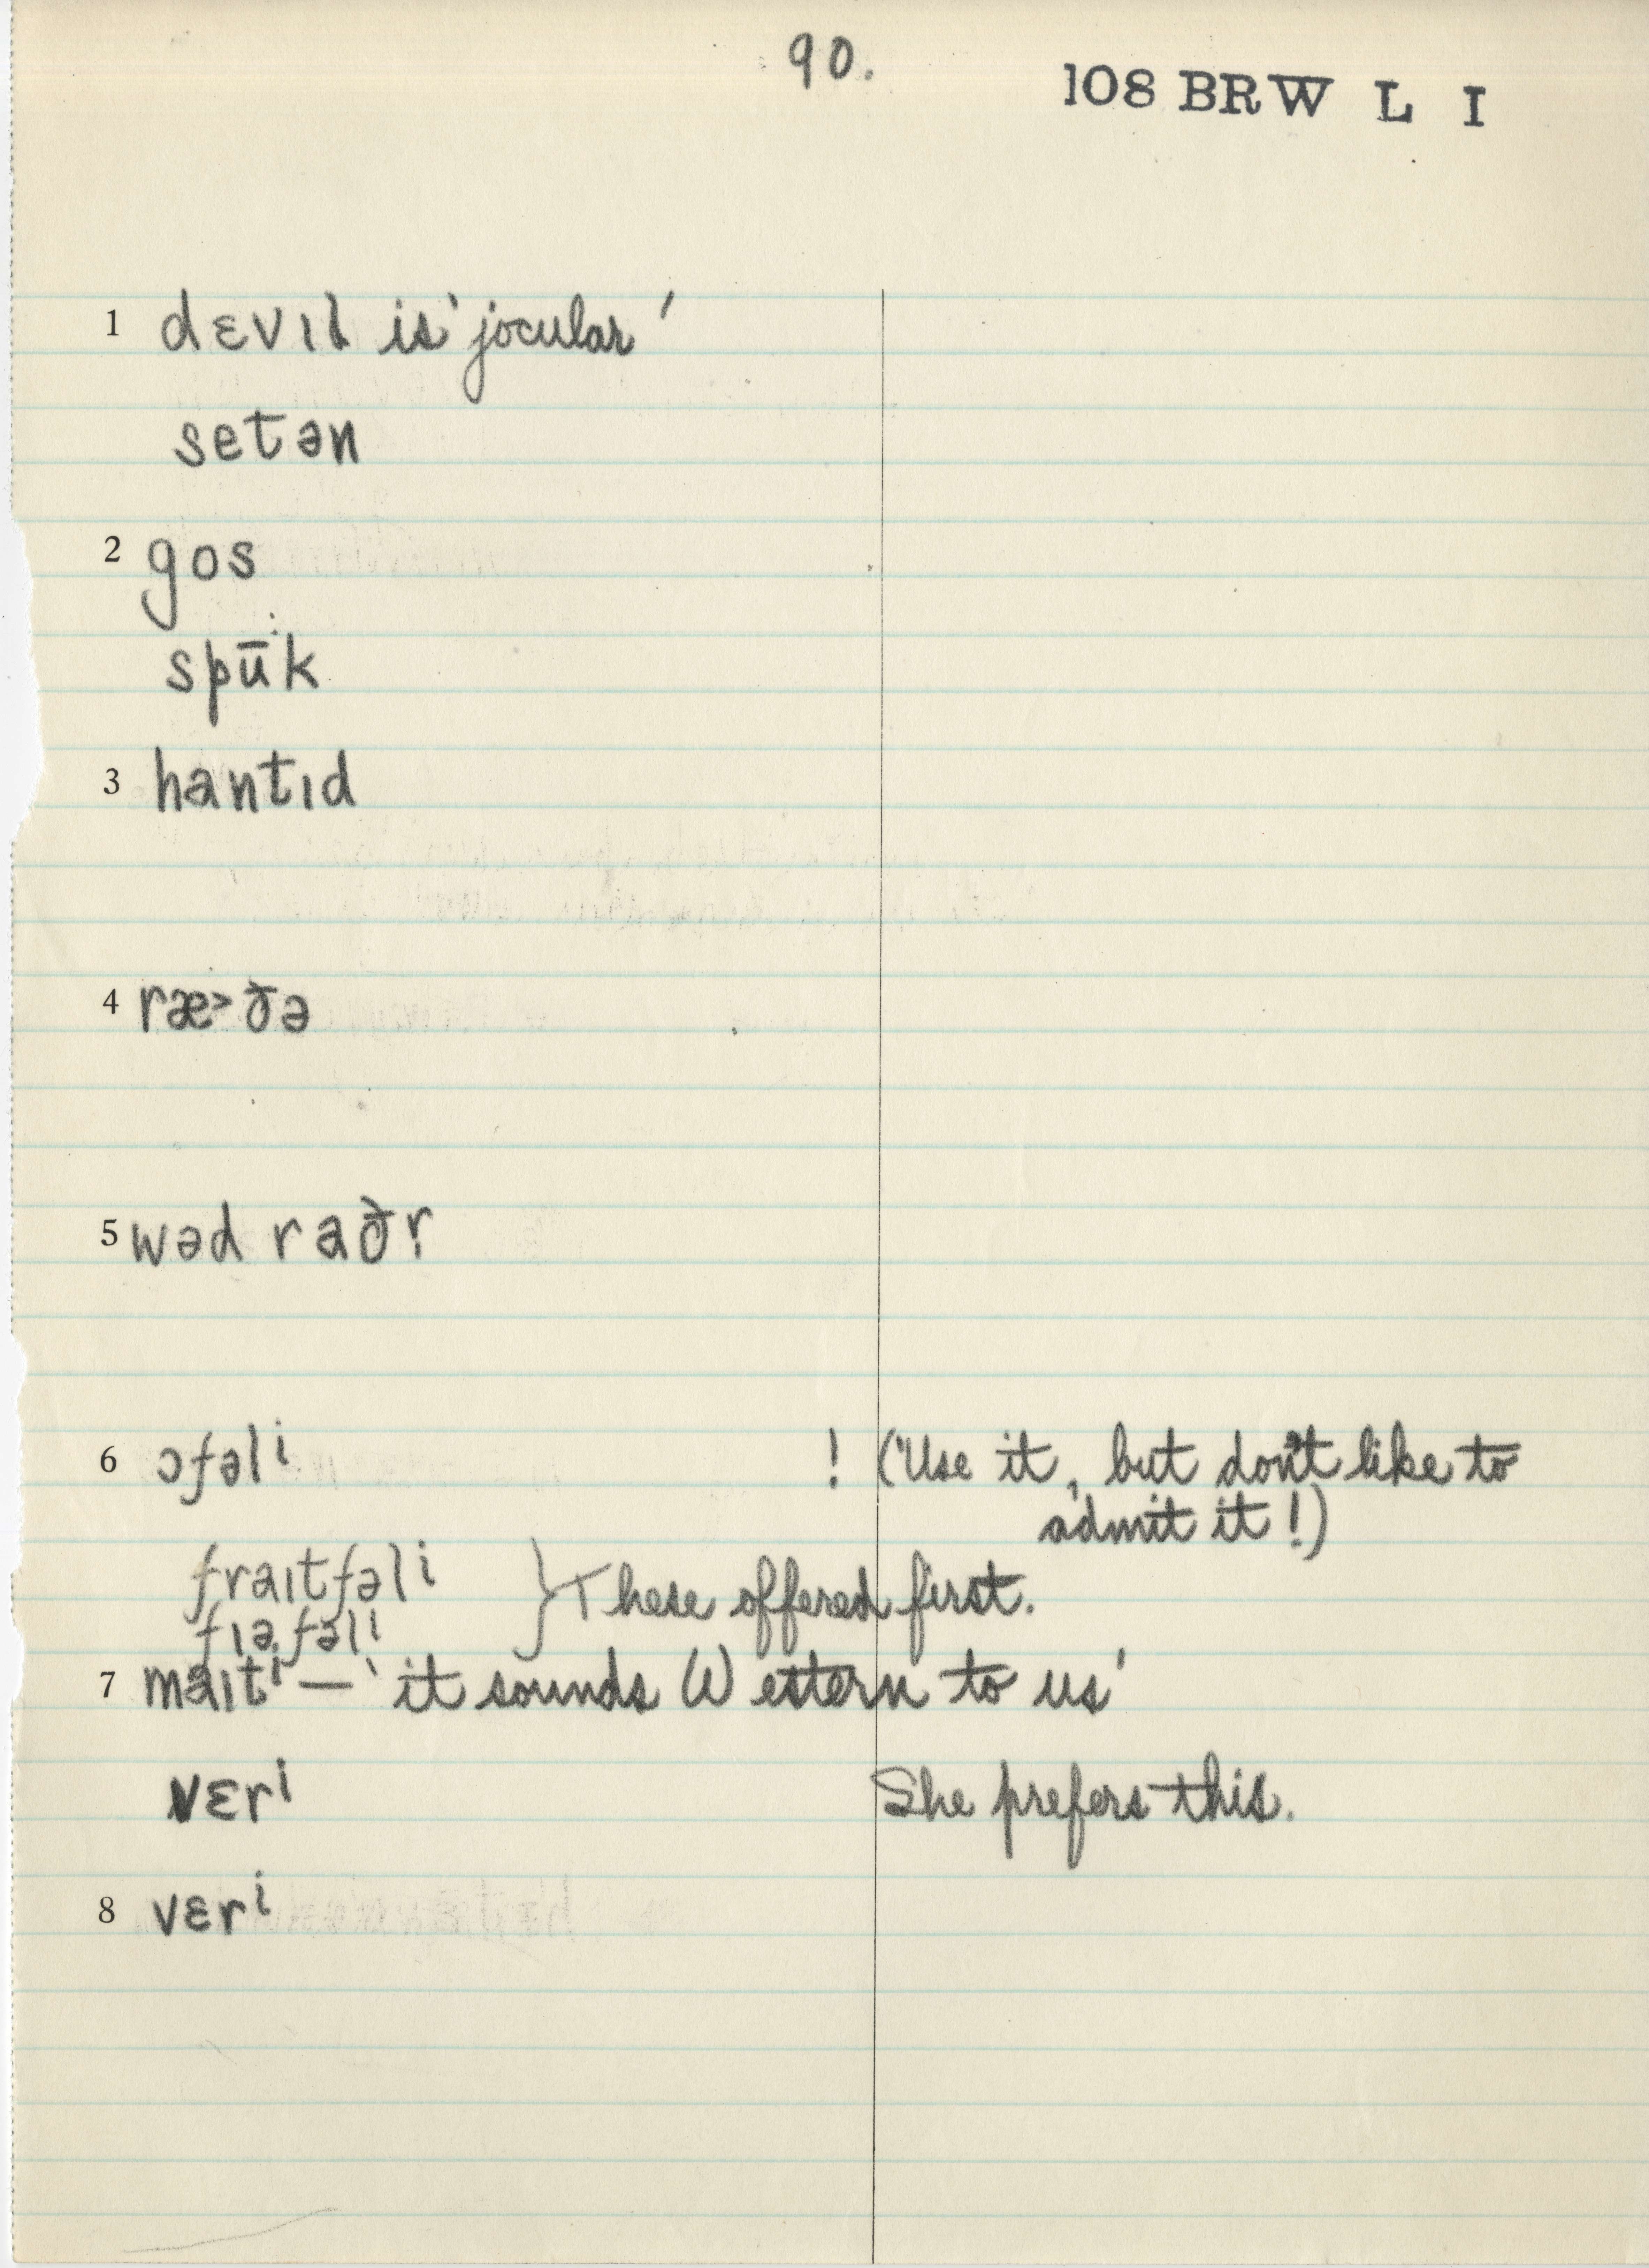 90.
108 BRW L I
1 dɛvɪl is 'jocular'
setən
2 gos
spūk
3 hantɪd
4 ræ>ðə
5 wəd raðr̩
6 ɔfəlⁱ ! ('Use it, but don't like to
admit it!)
fraɪtfəlⁱ } These offered first.
fɪəfəlⁱ
7 maɪtⁱ — 'it sounds Western to us'
vɛrⁱ She prefers this.
8 vɛrⁱ